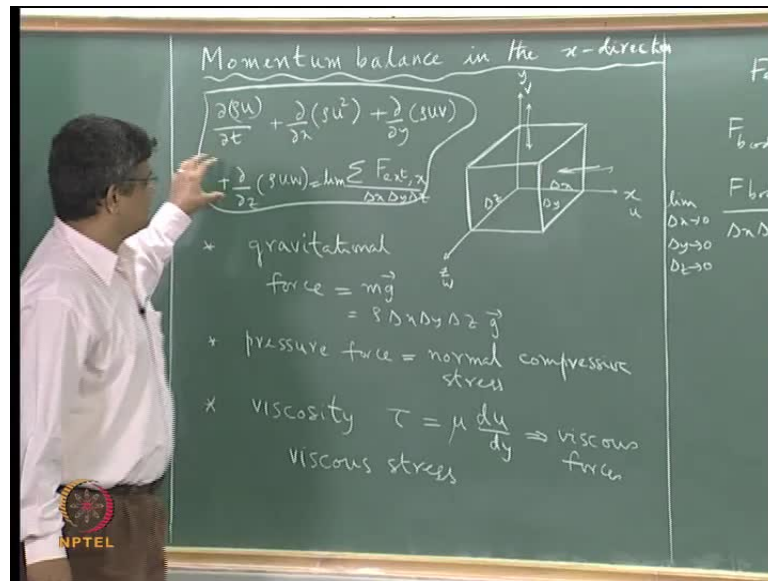 Momentum balance in the x-direction
∂(ρu)/∂t + ∂/∂x (ρu²) + ∂/∂y (ρuv)
+ ∂/∂z (ρuw) = lim Σ F_ext,x / ΔxΔyΔz
* gravitational
force = mg⃗
= ρ Δx Δy Δz g⃗
* pressure force = normal compressive
stress
* viscosity τ = μ du/dy ⇒ viscous
forces
viscous stress
y
v
Δx
x
u
Δy
Δz
z
w
F
F_bod
lim
Δx→0
F_bod
Δy→0
Δz→0
NPTEL